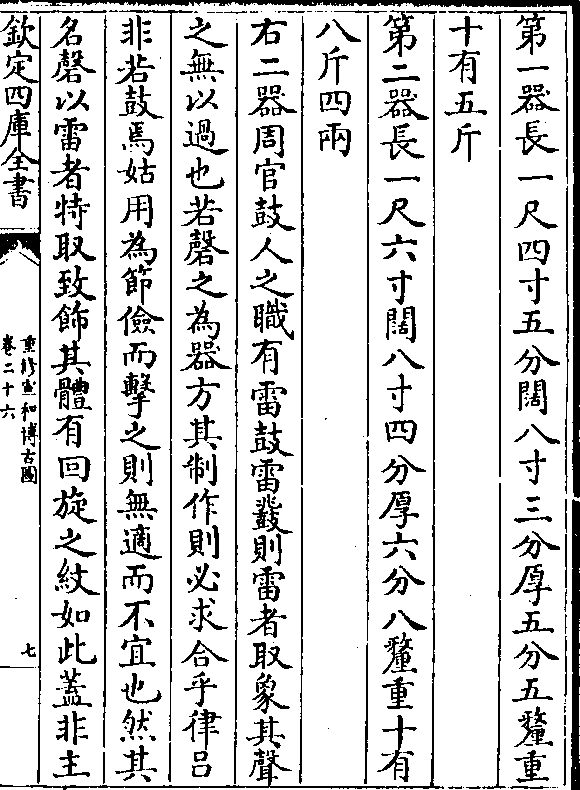 第一器長一尺四寸五分闊八寸三分厚五分五釐重
十有五斤
第二器長一尺六寸闊八寸四分厚六分八釐重十有
八斤四兩
右二器周官鼓人之職有雷鼓雷鼗則雷者取象其聲
之無以過也若磬之為器方其制作則必求合乎律呂
非若鼓焉姑用為節儉而擊之則無適而不宜也然其
名磬以雷者特取致飾其體有回旋之紋如此蓋非主
欽定四庫全書
重修宣和博古圖
卷二十六
七